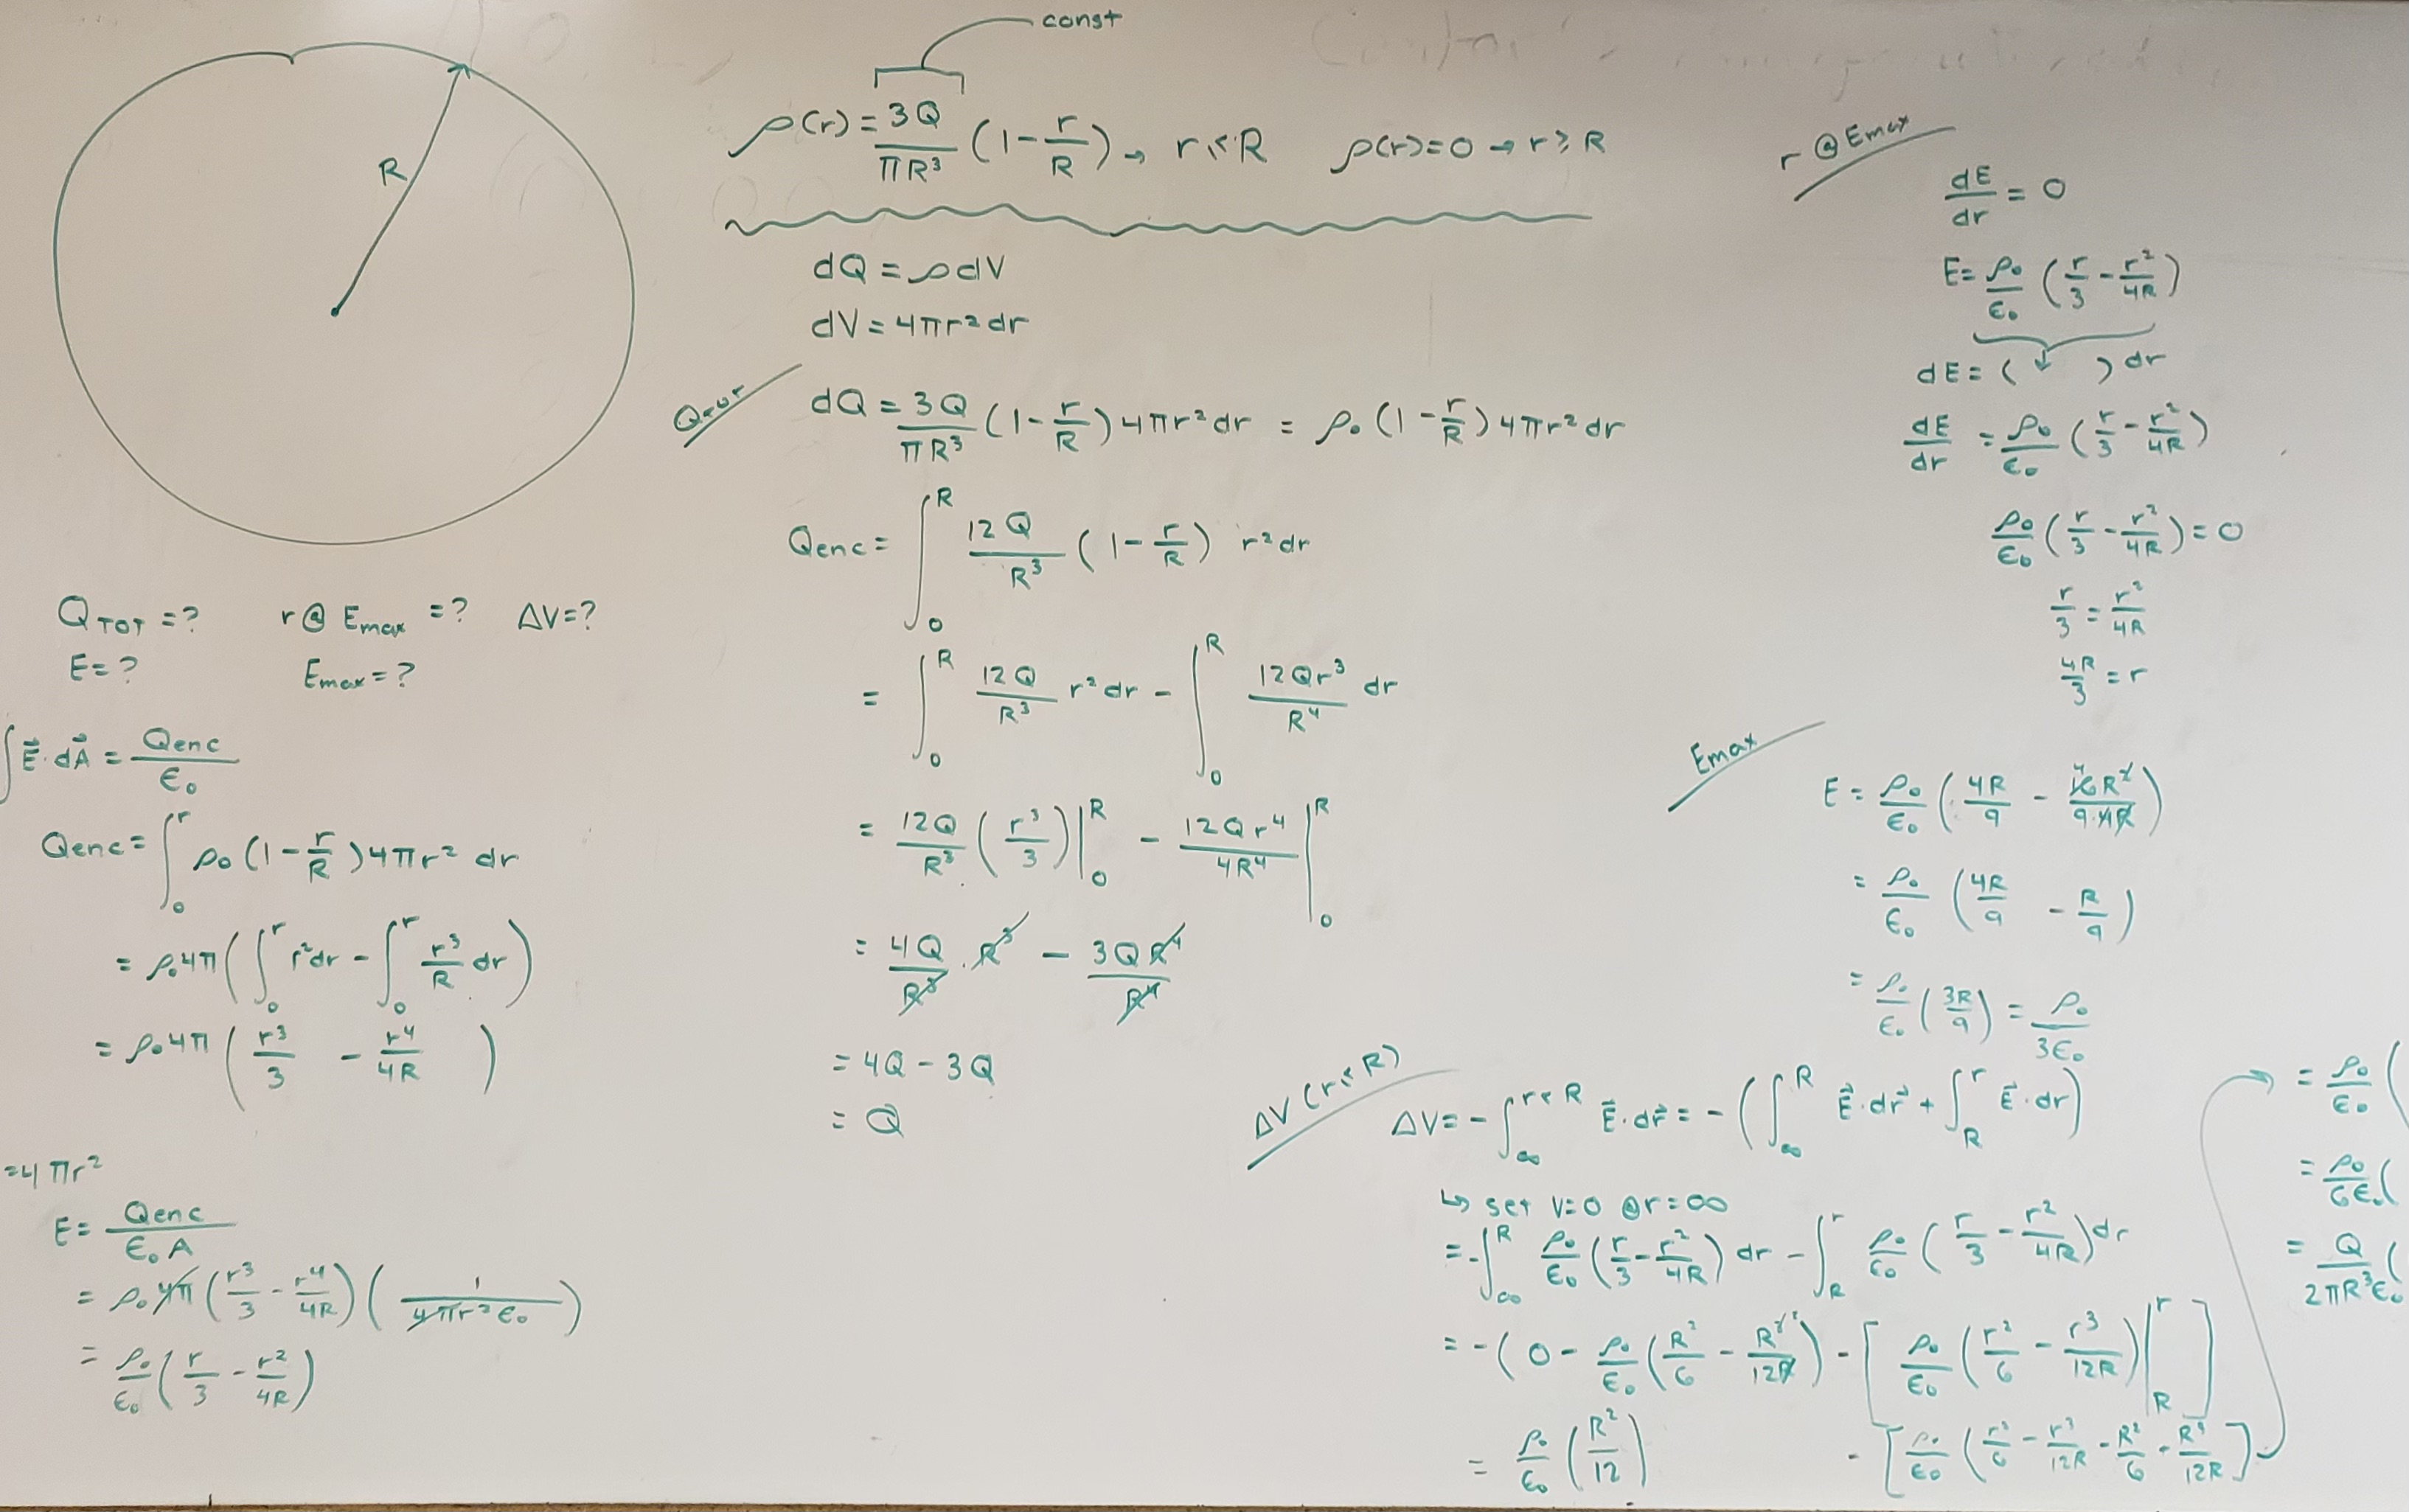 R
Q_TOT = ?   r @ E_max = ?   ΔV = ?
E = ?   E_max = ?
∫ E⃗ · dA⃗ = Qenc / ε₀
Qenc = ∫₀^r ρ₀ (1 - r/R) 4πr² dr
= ρ₀4π ( ∫₀^r r²dr - ∫₀^r r³/R dr )
= ρ₀4π ( r³/3 - r⁴/4R )
= 4πr²
E = Qenc / ε₀A
= ρ₀4π ( r³/3 - r⁴/4R ) ( 1 / 4πr²ε₀ )
= ρ₀/ε₀ ( r/3 - r²/4R )
const
ρ(r) = 3Q/πR³ (1 - r/R) → r ≤ R   ρ(r) = 0 → r ≥ R
dQ = ρdV
dV = 4πr²dr
Q_TOT
dQ = 3Q/πR³ (1 - r/R) 4πr²dr = ρ₀ (1 - r/R) 4πr²dr
Qenc = ∫₀^R 12Q/R³ (1 - r/R) r²dr
= ∫₀^R 12Q/R³ r²dr - ∫₀^R 12Qr³/R⁴ dr
= 12Q/R³ ( r³/3 ) |₀^R - 12Qr⁴/4R⁴ |₀^R
= 4Q/R³ · R³ - 3QR⁴/R⁴
= 4Q - 3Q
= Q
r @ Emax
dE/dr = 0
E = ρ₀/ε₀ ( r/3 - r²/4R )
dE = ( ↓ ) dr
dE/dr = ρ₀/ε₀ ( r/3 - r²/4R )
ρ₀/ε₀ ( r/3 - r²/4R ) = 0
r/3 = r²/4R
4R/3 = r
Emax
E = ρ₀/ε₀ ( 4R/9 - 16R²/9·4R )
= ρ₀/ε₀ ( 4R/9 - R/9 )
= ρ₀/ε₀ ( 3R/9 ) = ρ₀/3ε₀
ΔV (r ≤ R)
ΔV = - ∫_∞^{r<R} E⃗ · dr⃗ = - ( ∫_∞^R E⃗ · dr⃗ + ∫_R^r E⃗ · dr )
↳ set V=0 @ r=∞
= - ∫_∞^R ρ₀/ε₀ ( r/3 - r²/4R ) dr - ∫_R^r ρ₀/ε₀ ( r/3 - r²/4R ) dr
= - ( 0 - ρ₀/ε₀ ( R²/6 - R²/12R ) - [ ρ₀/ε₀ ( r²/6 - r³/12R ) |_R^r ]
= ρ₀/ε₀ ( R²/12 ) - [ ρ₀/ε₀ ( r²/6 - r³/12R - R²/6 - R³/12R ]
= ρ₀/ε₀ (
= ρ₀/6ε₀ (
= Q/2πR³ε₀ (